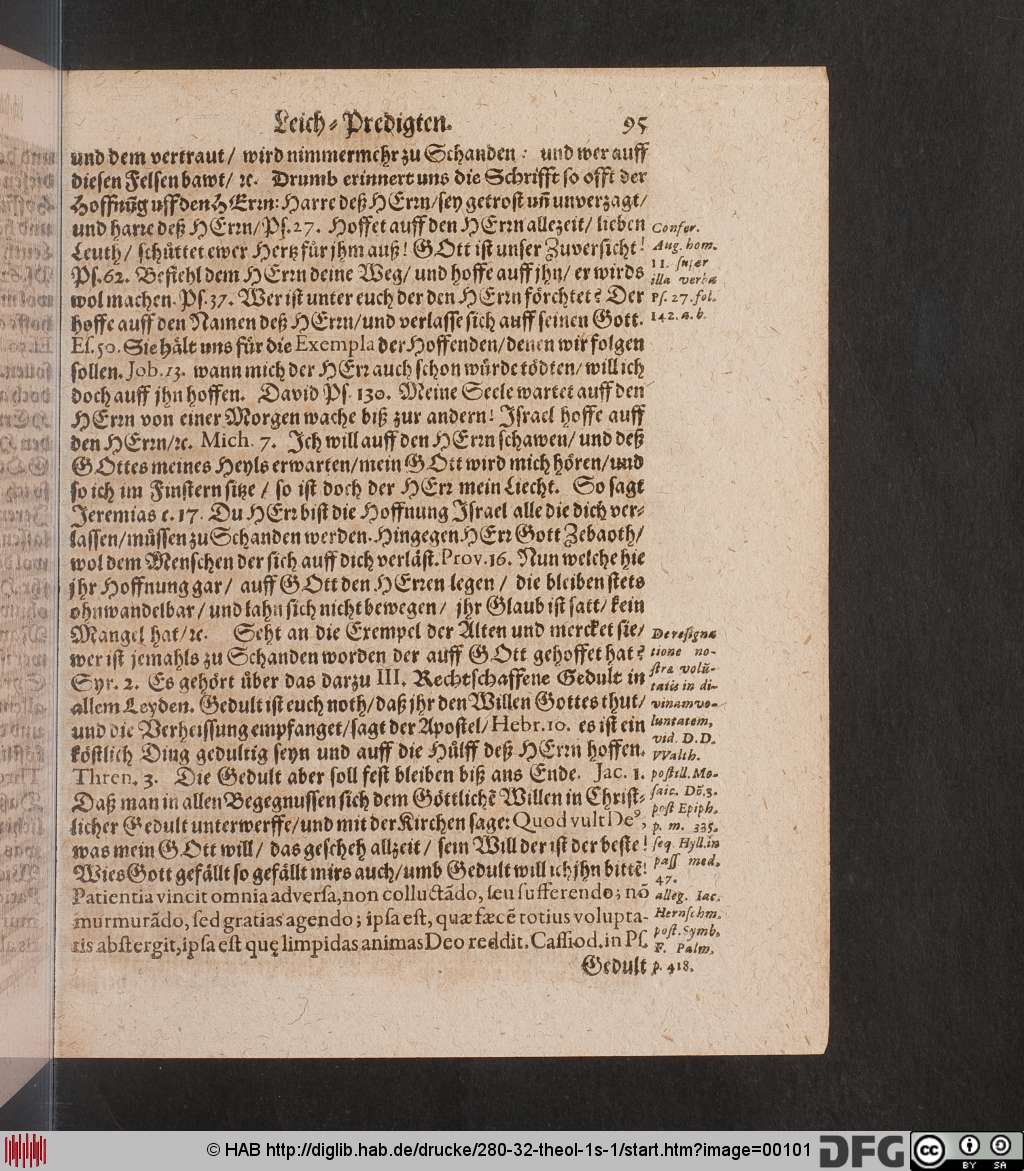 Leich-Predigten. 95
und dem vertraut/ wird nimmermehr zu Schanden: und wer auff
diesen Felsen bawt/ ꝛc. Drumb erinnert uns die Schrifft so offt der
Hoffnūg uff den HErꝛn: Harre deß HErꝛn/sey getrost uñ unverzagt/
und harre deß HErꝛn/Ps. 27. Hoffet auff den HErꝛn allezeit/ lieben
Leuth/ schüttet ewer Hertz für jhm auß! GOtt ist unser Zuversicht!
Ps. 62. Befiehl dem HErꝛn deine Weg/ und hoffe auff jhn/ er wirds
wol machen. Ps. 37. Wer ist unter euch der den HErꝛn förchtet? Der
hoffe auff den Namen deß HErꝛn/und verlasse sich auff seinen Gott.
Es. 50. Sie hält uns für die Exempla der Hoffenden/denen wir folgen
sollen. Job. 13. wann mich der HErꝛ auch schon würde tödten/ will ich
doch auff jhn hoffen. David Ps. 130. Meine Seele wartet auff den
HErꝛn von einer Morgen wache biß zur andern! Israel hoffe auff
den HErꝛn/ꝛc. Mich. 7. Ich will auff den HErꝛn schawen/ und deß
GOttes meines Heyls erwarten/mein GOtt wird mich hören/und
so ich im Finstern sitze/ so ist doch der HErꝛ mein Liecht. So sagt
Jeremias c. 17. Du HErꝛ bist die Hoffnung Israel alle die dich ver-
lassen/müssen zu Schanden werden. Hingegen HErꝛ Gott Zebaoth/
wol dem Menschen der sich auff dich verläst. Prov. 16. Nun welche hie
jhr Hoffnung gar/ auff GOtt den HErꝛen legen/ die bleiben stets
ohnwandelbar/ und lahn sich nicht bewegen/ jhr Glaub ist satt/ kein
Mangel hat/ꝛc. Seht an die Exempel der Alten und mercket sie/
wer ist jemahls zu Schanden worden der auff GOtt gehoffet hat?
Syr. 2. Es gehört über das darzu III. Rechtschaffene Gedult in
allem Leyden. Gedult ist euch noth/ daß jhr den Willen Gottes thut/
und die Verheissung empfanget/sagt der Apostel/ Hebr. 10. es ist ein
köstlich Ding gedultig seyn und auff die Hülff deß HErꝛn hoffen.
Thren. 3. Die Gedult aber soll fest bleiben biß ans Ende. Jac. 1.
Daß man in allen Begegnussen sich dem Göttlichē Willen in Christ-
licher Gedult unterwerffe/und mit der Kirchen sage: Quod vult Deꝰ,
was mein GOtt will/ das gescheh allzeit/ sein Will der ist der beste!
Wies Gott gefällt so gefällt mirs auch/umb Gedult will ich jhn bittē!
Patientia vincit omnia adversa, non colluctādo, seu sufferendo; nō
murmurādo, sed gratias agendo; ipsa est, quæ fæcē totius volupta-
tis abstergit, ipsa est quę limpidas animas Deo reddit. Cassiod. in Ps.
Gedult
Confer.
Aug. hom.
11. super
illa verba
Ps. 27. fol.
142. a. b.
De resigna
tione no-
stræ volū-
tatis in di-
vinam vo-
luntatem,
vid. D. D.
VValth.
postill. Mo-
saic. Dō. 3.
post Epiph.
p. m. 335.
seq. Hyll. in
pass. med.
47.
alleg. Iac.
Hernschm.
post. Symb.
F. Palm.
p. 418.
© HAB http://diglib.hab.de/drucke/280-32-theol-1s-1/start.htm?image=00101
DFG
cc BY SA